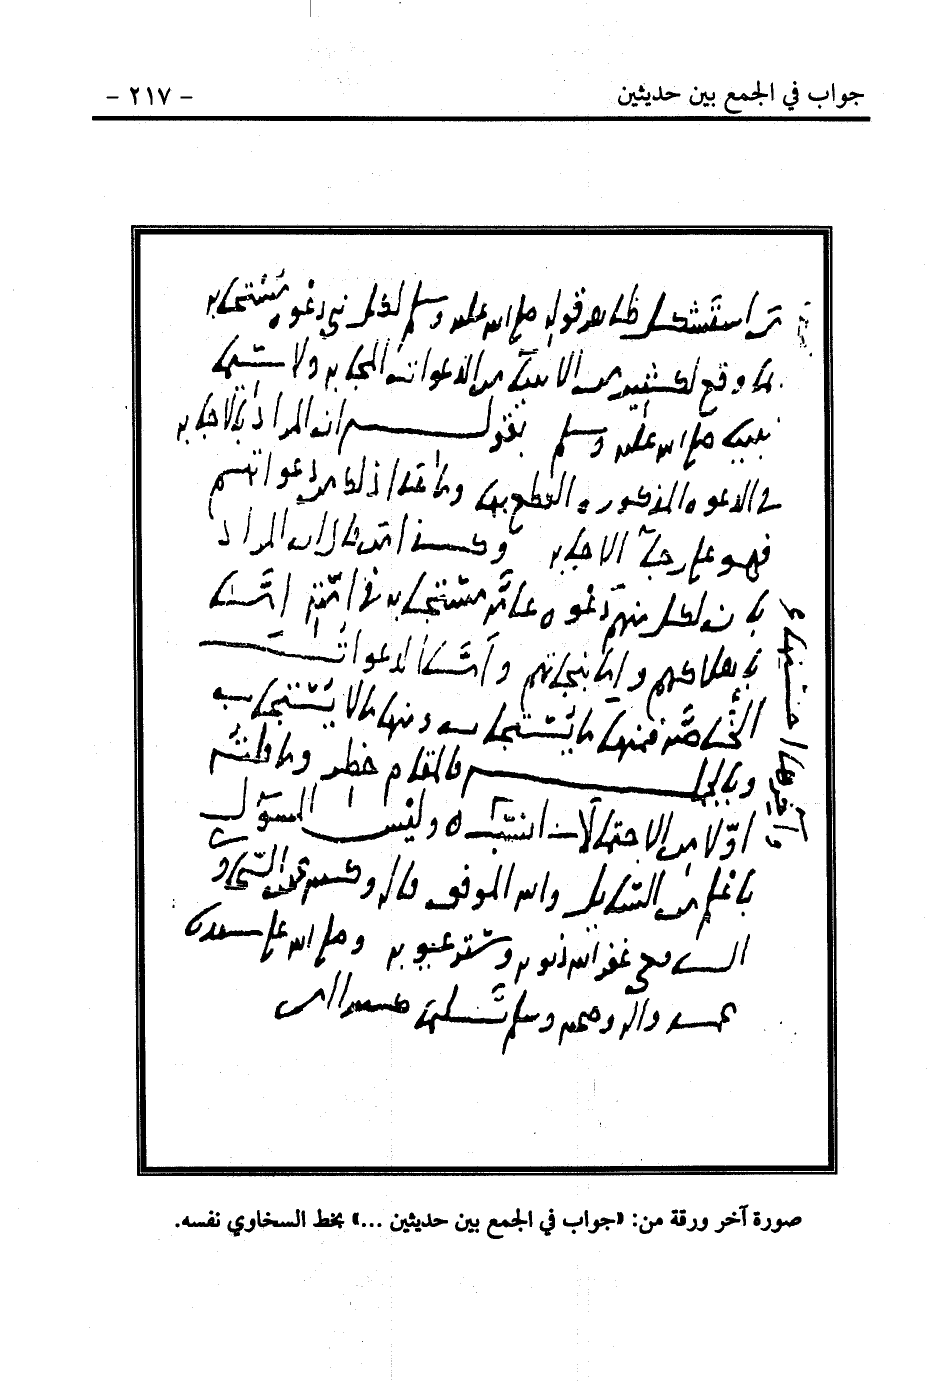 جواب في الجمع بين حديثين
- ٢١٧ -
استشكل ظاهر قوله صلى الله عليه وسلم لكل نبي دعوة مستجابة
بما وقع لكثير من الأنبياء من الدعوات المجابة ولا سيما
نبينا صلى الله عليه وسلم بقوله أن المراد بالإجابة
في الدعوة المذكورة القطع بها وما عدا ذلك من دعواتهم
فهو على رجاء الإجابة وكذا قال أن المراد
بأن لكل منهم دعوة عامة مستجابة في أمته إما
بإهلاكهم وإما بنجاتهم وأما الدعوات
الخاصة فمنها ما يستجاب ومنها ما لا يستجاب
وبالجملة فالمقام خطر وما قلته
أولا من الاحتمالات وليس المسؤول
بأعلم من السائل والله الموفق قاله وكتبه محمد
السخاوي غفر الله ذنوبه وستر عيوبه وصلى الله على سيدنا
محمد وآله وصحبه وسلم تسليما حسبنا الله
صورة آخر ورقة من: «جواب في الجمع بين حديثين ...» بخط السخاوي نفسه.